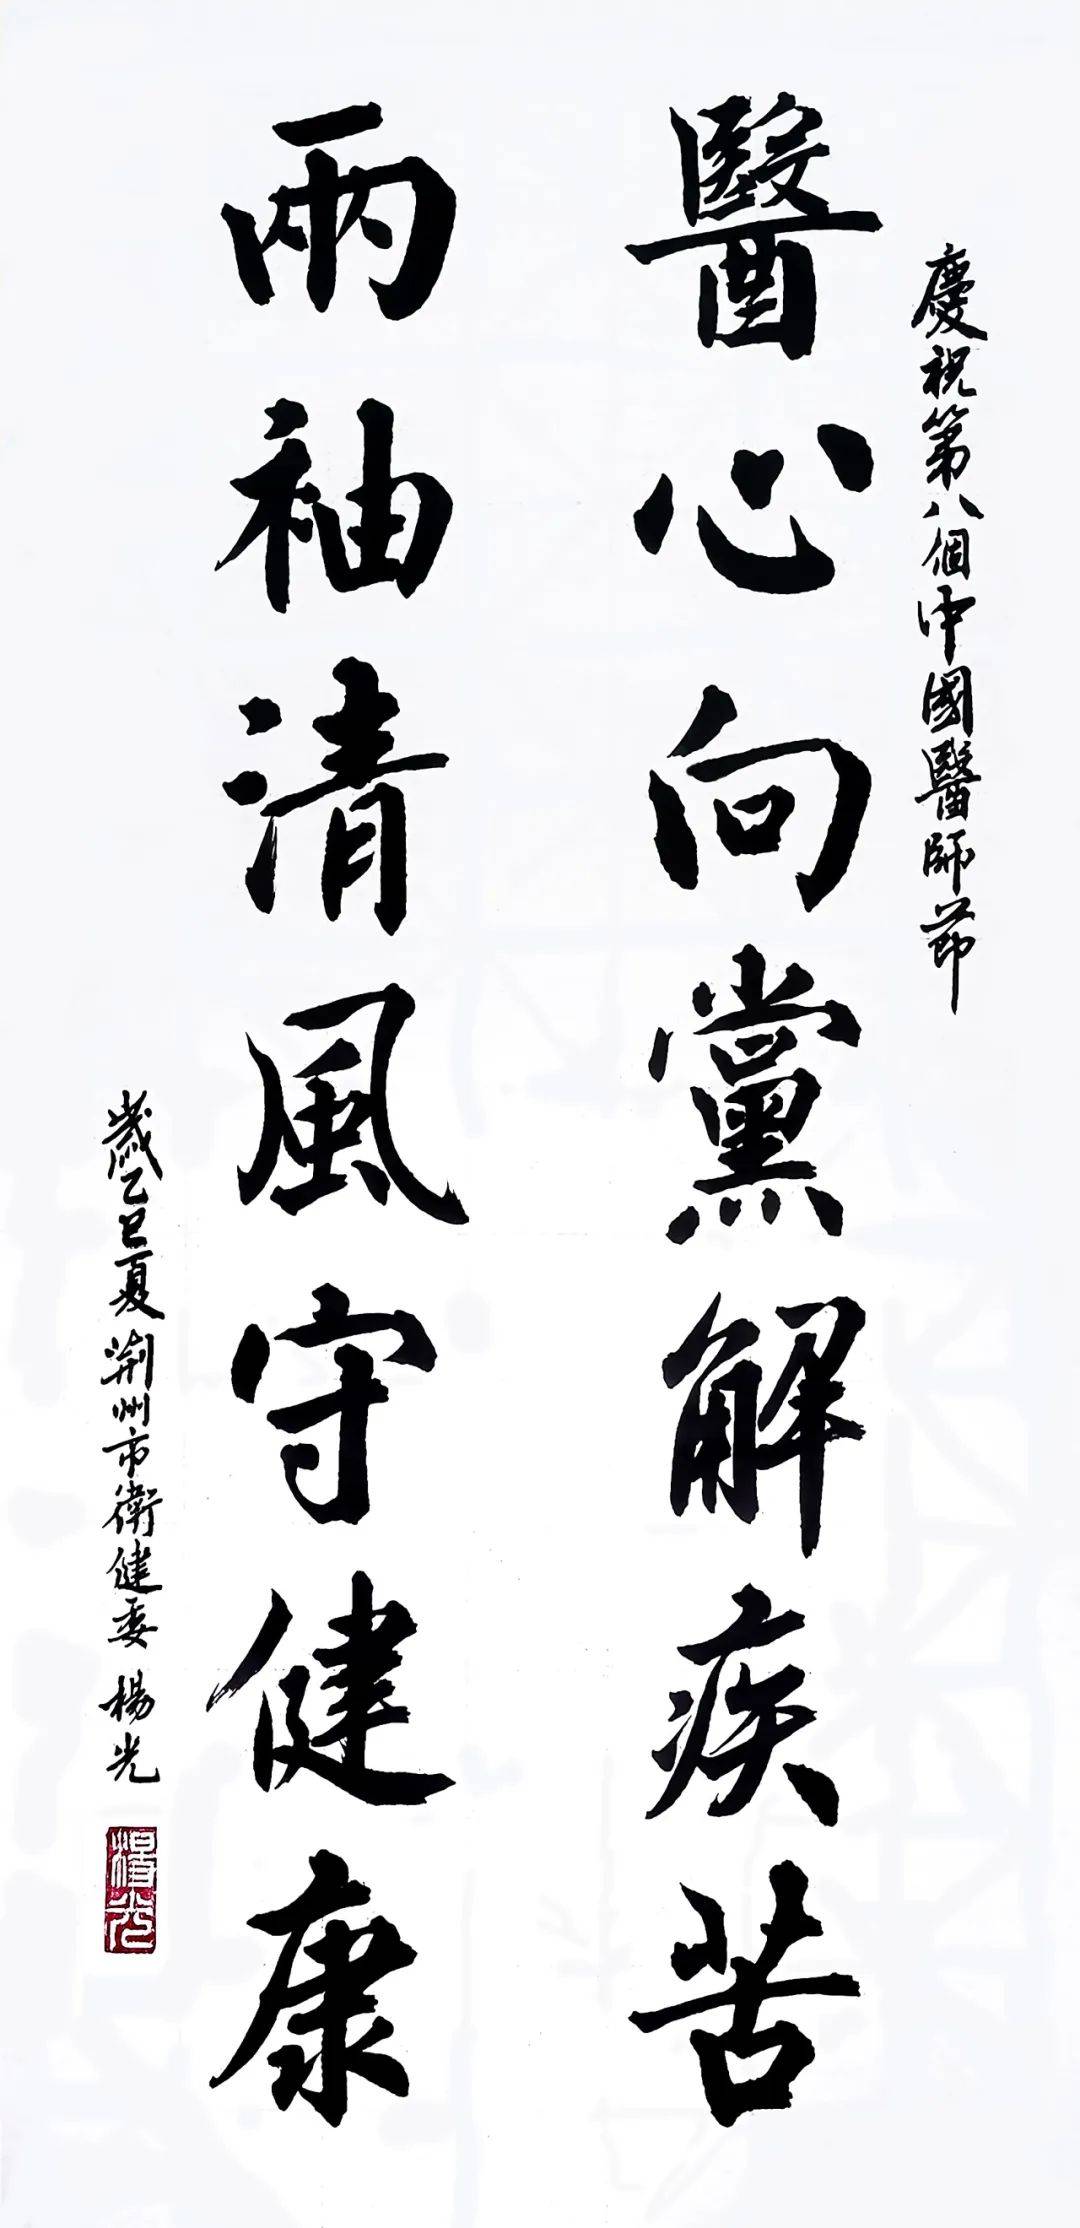 慶祝第八個中國醫師節
醫心向黨解疾苦
兩袖清風守健康
歲乙巳夏荆州市衛健委 楊光
楊光